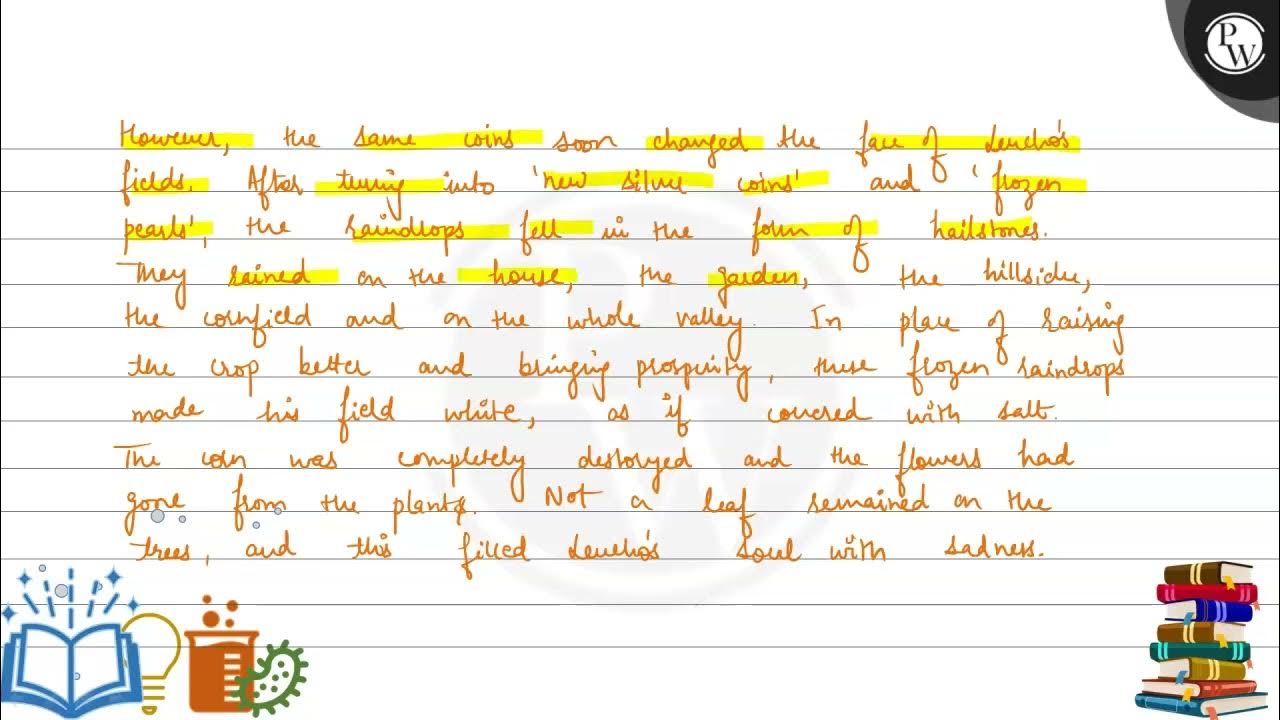 PW
However, the same coins soon changed the face of Lencho's
fields. After turing into 'new silver coins' and 'frozen
pearls', the raindrops fell in the form of hailstones.
They rained on the house, the garden, the hillside,
the cornfield and on the whole valley. In place of raising
the crop better and bringing prosperity, these frozen raindrops
made his field white, as if covered with salt.
The corn was completely destoryed and the flowers had
gone from the plants. Not a leaf remained on the
trees, and this filled Lencho's soul with sadness.